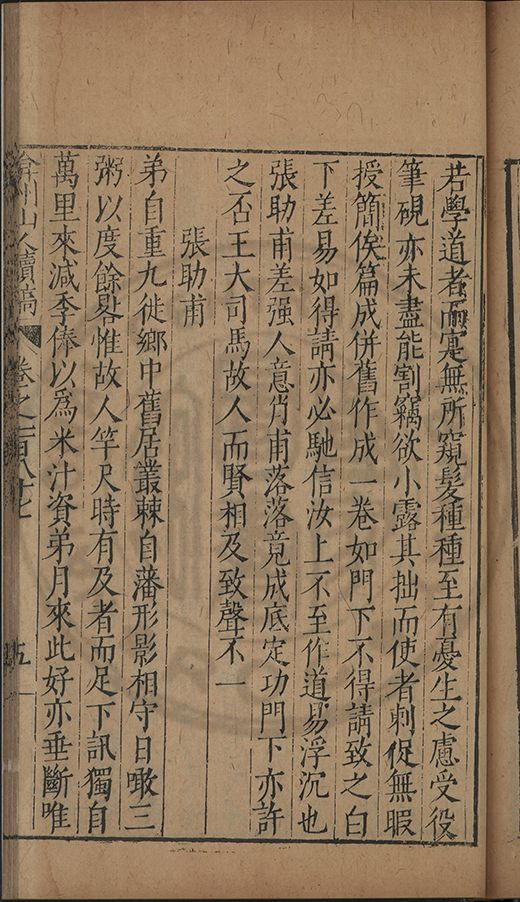 若學道者而寔無所窺髮種種至有憂生之慮受役
筆硯亦未盡能割竊欲小露其拙而使者刺促無暇
授簡俟篇成併舊作成一卷如門下不得請致之白
下差易如得請亦必馳信汝上不至作道易浮沉也
張助甫差强人意肖甫落落竟成底定功門下亦許
之否王大司馬故人而賢相及致聲不一
張助甫
弟自重九徙鄉中舊居叢棘自藩形影相守日噉三
粥以度餘晷惟故人竿尺時有及者而足下訊獨自
萬里來減季俸以爲米汁資弟月來此好亦垂斷唯
弇州山人續稿 卷之一百八十七 五